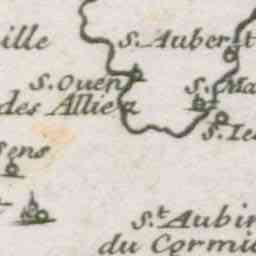 ille
S. Aubert
S. Ouen
des Allie
S. Ma
S. Ie
Sens
S.t Aubin
du Cormi